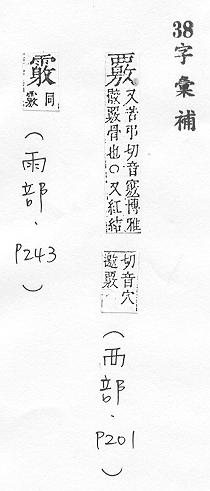 38字彙補
覈
又苦弔切音竅博雅
覈骨也○又紅結
切音穴
覈
(襾部.P201)
同
覈
(雨部.P243)